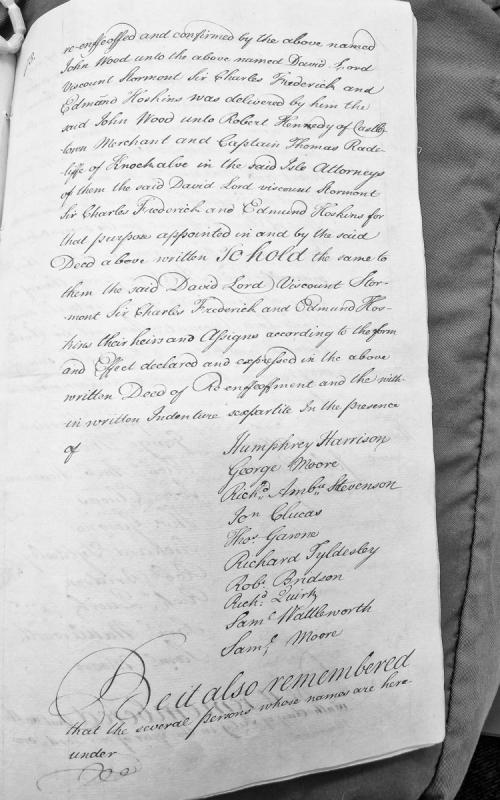 re-enffeoffed and confirmed by the above named
John Wood unto the above named David Lord
Viscount Stormont Sir Charles Frederick and
Edmund Hoskins was delivered by him the
said John Wood unto Robert Kennedy of Castle-
town Merchant and Captain Thomas Rade-
liffe of Knockalve in the said Isle Attorneys
of them the said David Lord viscount Stormont
Sir Charles Frederick and Edmund Hoskins for
that purpose appointed in and by the said
Deed above written To hold the same to
them the said David Lord Viscount Stor-
mont Sir Charles Frederick and Edmund Hos-
kins their heirs and Assigns according to the form
and Effect declared and expressed in the above
written Deed of Re-enffeoffment and the with-
in written Indenture sexpartite In the presence
of
Humphrey Harrison
George Moore
Richd. Ambse Stevenson
Jon Clucas
Thos. Gawne
Richard Tyldesley
Robt. Bridson
Richd. Quirk
Saml. Wattleworth
Saml. Moore
Be it also remembered
that the several persons whose names are here
under